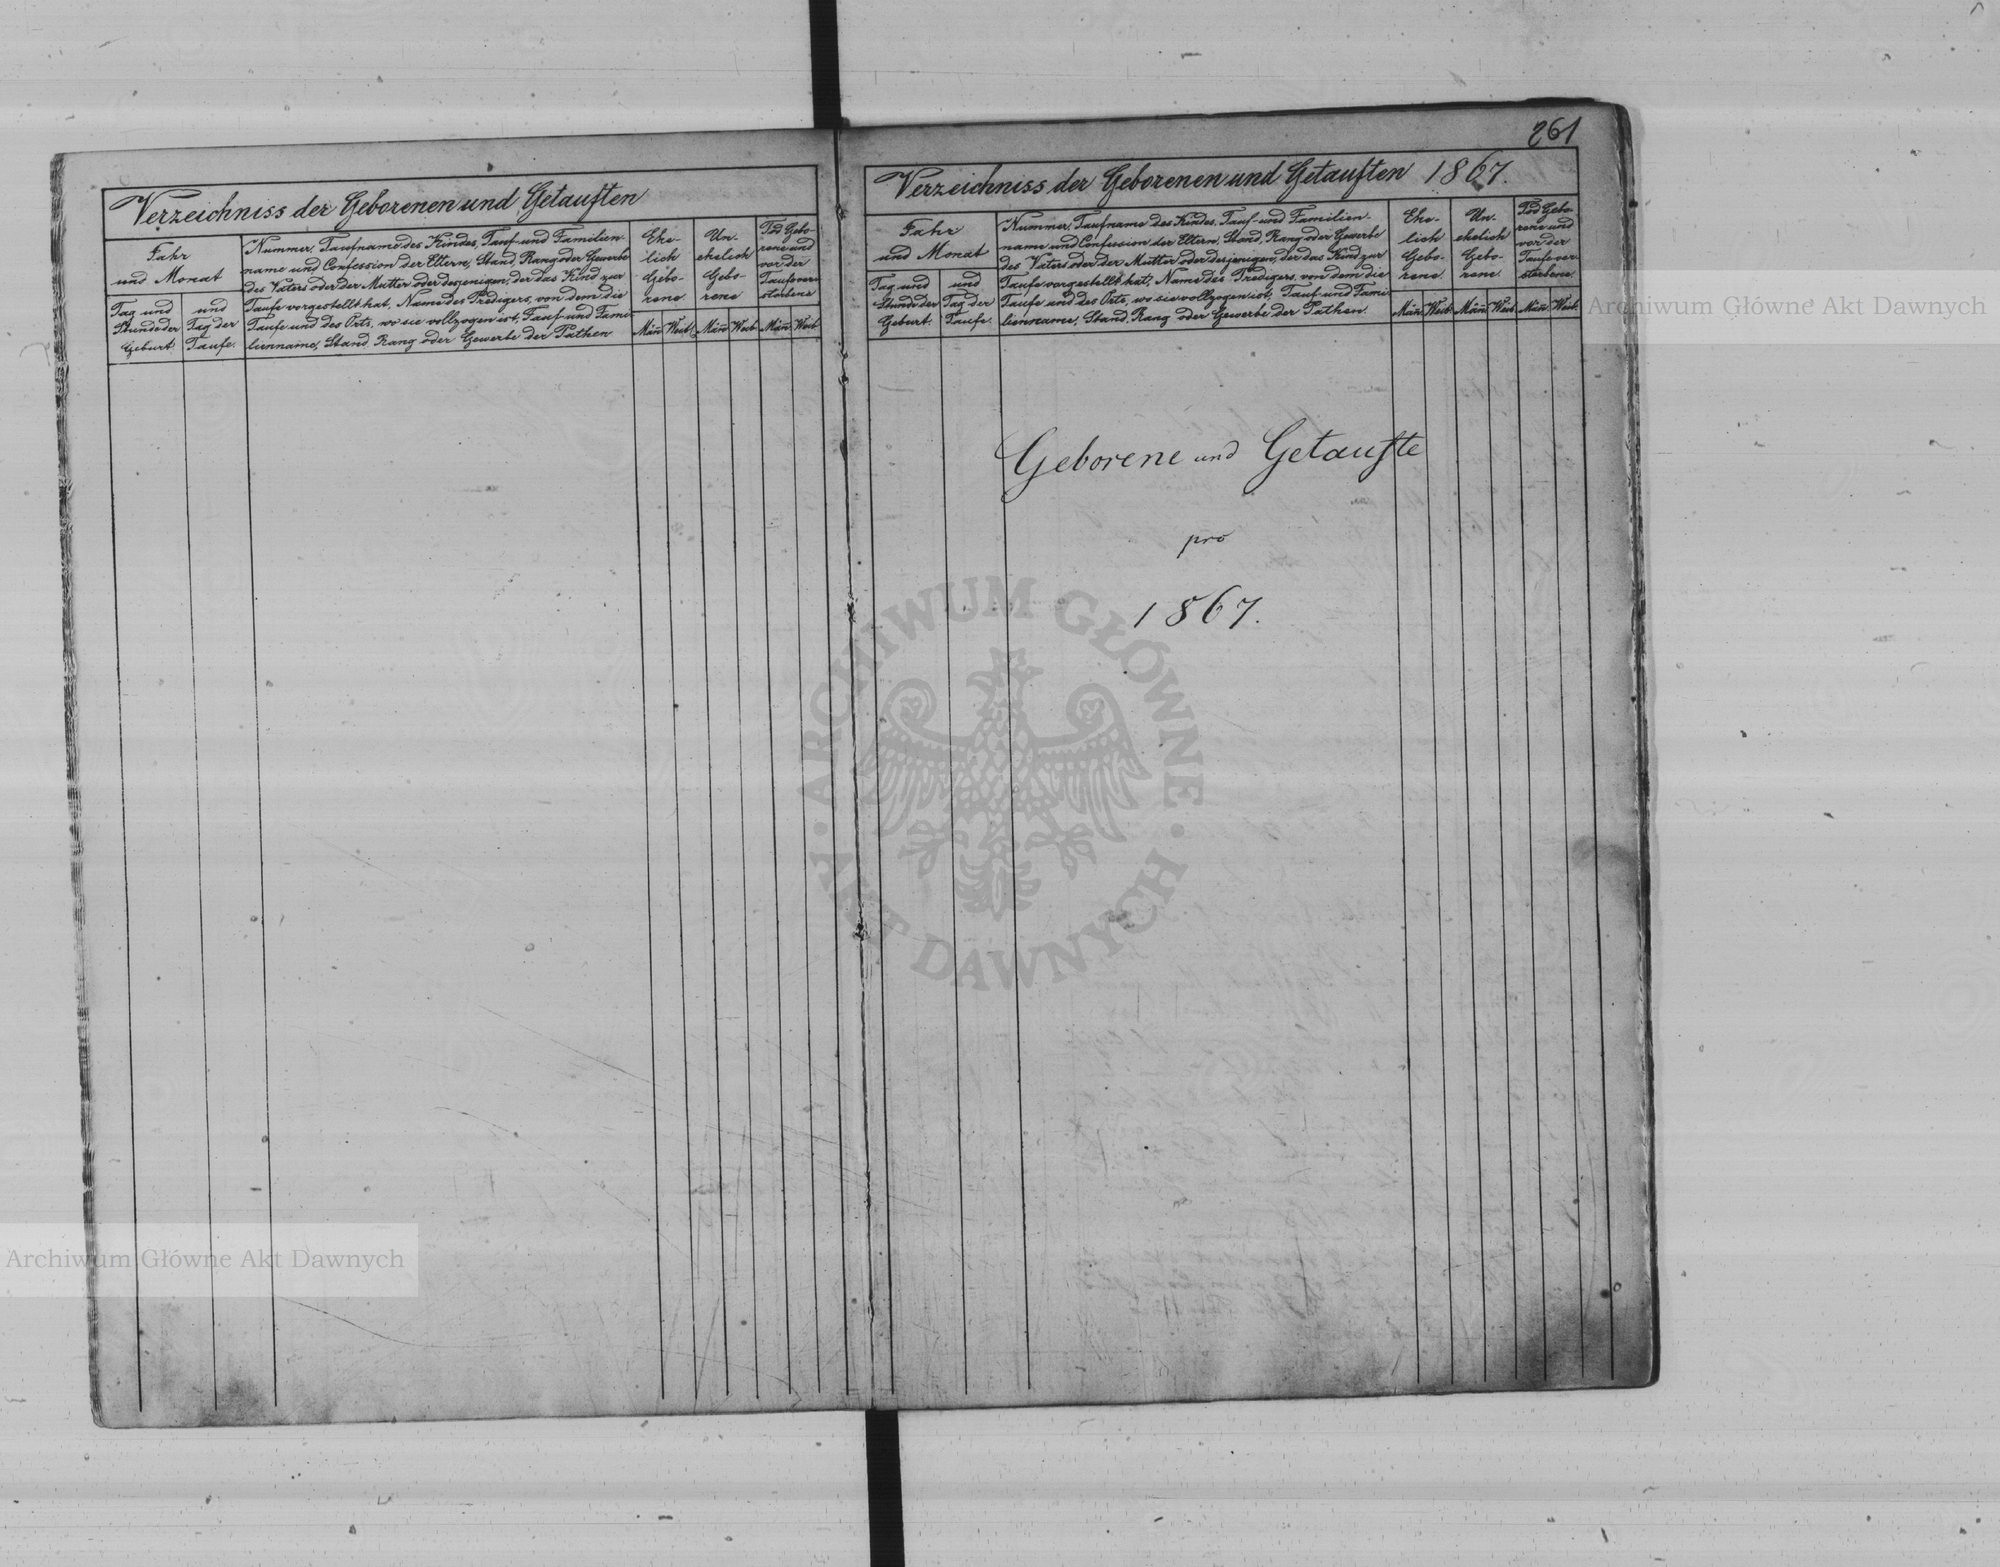 Verzeichniss der Geborenen und Getauften
Jahr
und Monat
Tag und
Stunde der
Geburt.
und
Tag der
Taufe.
Nummer, Taufname des Kindes, Tauf- und Familien-
name und Confession der Eltern, Stand, Rang oder Gewerbe
des Vaters oder der Mutter oder desjenigen, der das Kind zur
Taufe vorgestellt hat, Name des Predigers, von dem die
Taufe und des Orts, wo sie vollzogen ist, Tauf- und Fami-
lienname, Stand, Rang oder Gewerbe der Pathen
Ehe-
lich
Gebo-
rene
Un-
ehelich
Gebo-
rene
Tod Gebo-
rene und
vor der
Taufe ver-
storbene
Män̄. Weib. Män̄. Weib. Män̄. Weib.
261
Verzeichniss der Geborenen und Getauften 1867.
Jahr
und Monat
Tag und
Stunde der
Geburt.
und
Tag der
Taufe.
Nummer, Taufname des Kindes, Tauf- und Familien-
name und Confession der Eltern, Stand, Rang oder Gewerbe
des Vaters oder der Mutter oder desjenigen, der das Kind zur
Taufe vorgestellt hat, Name des Predigers, von dem die
Taufe und des Orts, wo sie vollzogen ist, Tauf- und Fami-
lienname, Stand, Rang oder Gewerbe der Pathen.
Ehe-
lich
Gebo-
rene
Un-
ehelich
Gebo-
rene
Tod Gebo-
rene und
vor der
Taufe ver-
storbene
Män̄. Weib. Män̄. Weib. Män̄. Weib.
Geborene und Getaufte
pro
1867.
ARCHIWUM GŁÓWNE
AKT DAWNYCH
Archiwum Główne Akt Dawnych
Archiwum Główne Akt Dawnych